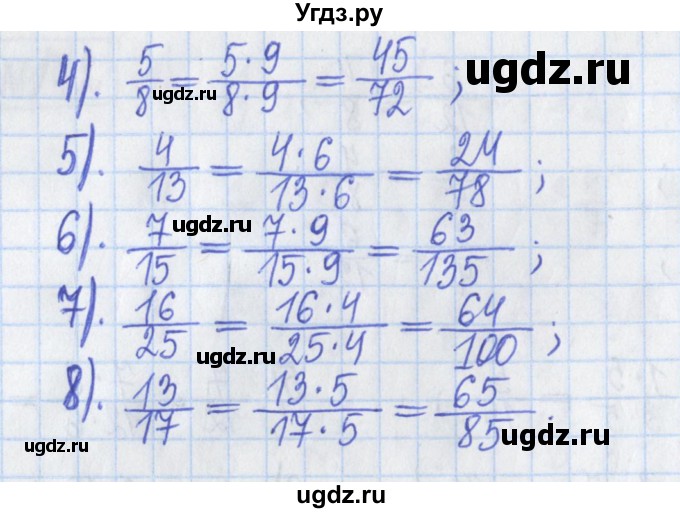 Угдз.ру
4). 5/8 = 5·9/8·9 = 45/72 ;
ugdz.ru
ugdz.ru
5). 4/13 = 4·6/13·6 = 24/78 ;
ugdz.ru
6). 7/15 = 7·9/15·9 = 63/135 ;
7). 16/25 = 16·4/25·4 = 64/100 ;
ugdz.ru
8). 13/17 = 13·5/17·5 = 65/85 .
ugdz.ru
ugdz.ru
ugdz.ru